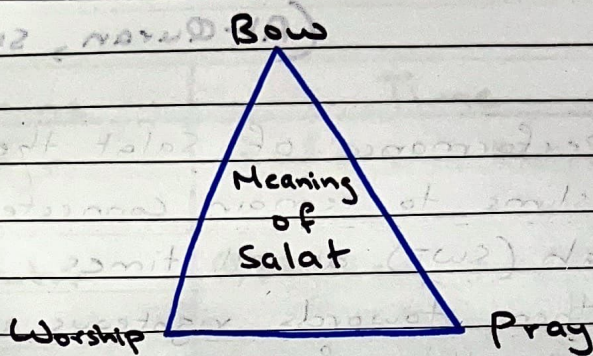 Bow
Meaning
of
Salat
Worship
Pray